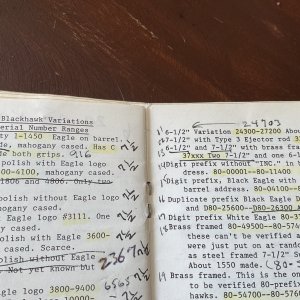 Blackhawk Variations
erial Number Ranges
ty 1-1450 Eagle on barrel,
ds, mahogany cased. Has C
both grips. 916
polish with Eagle logo
00-4100, mahogany cased. 7½
1806 and 4806. Only two
polish without Eagle logo 7½
Eagle logo #3111. One 7½
y cased.
olish with Eagle 3600- 7½
cased. Scarce.
olish without Eagle on
Not yet known but
2367 7½
3800-9400 7½
Eagle logo 6565 7½
24703
11 6-1/2" Variation 24300-27200 Abou
12 7-1/2" with Type 3 Ejector rod
6-1/2" and 7-1/2" with brass fram
13 37xxx Two 7-1/2" and one 6-1
14 Digit prefix without "INC." in
dress. 80-00001--80-11400
15 Digit prefix, Black Eagle with
barrel address. 80-04100--8
16 Duplicate prefix Black Eagle D
and D80-25600--D80-26300
17 Digit prefix White Eagle 80-3
18 Brass framed 80-49500--80-574
these can't be verified a
were just put on at rando
as steel framed 7-1/2" Se
About 1550 made. (80=
19 Brass framed. This is the on
to be verified 80-prefix
80-54700--80-576
hawks.